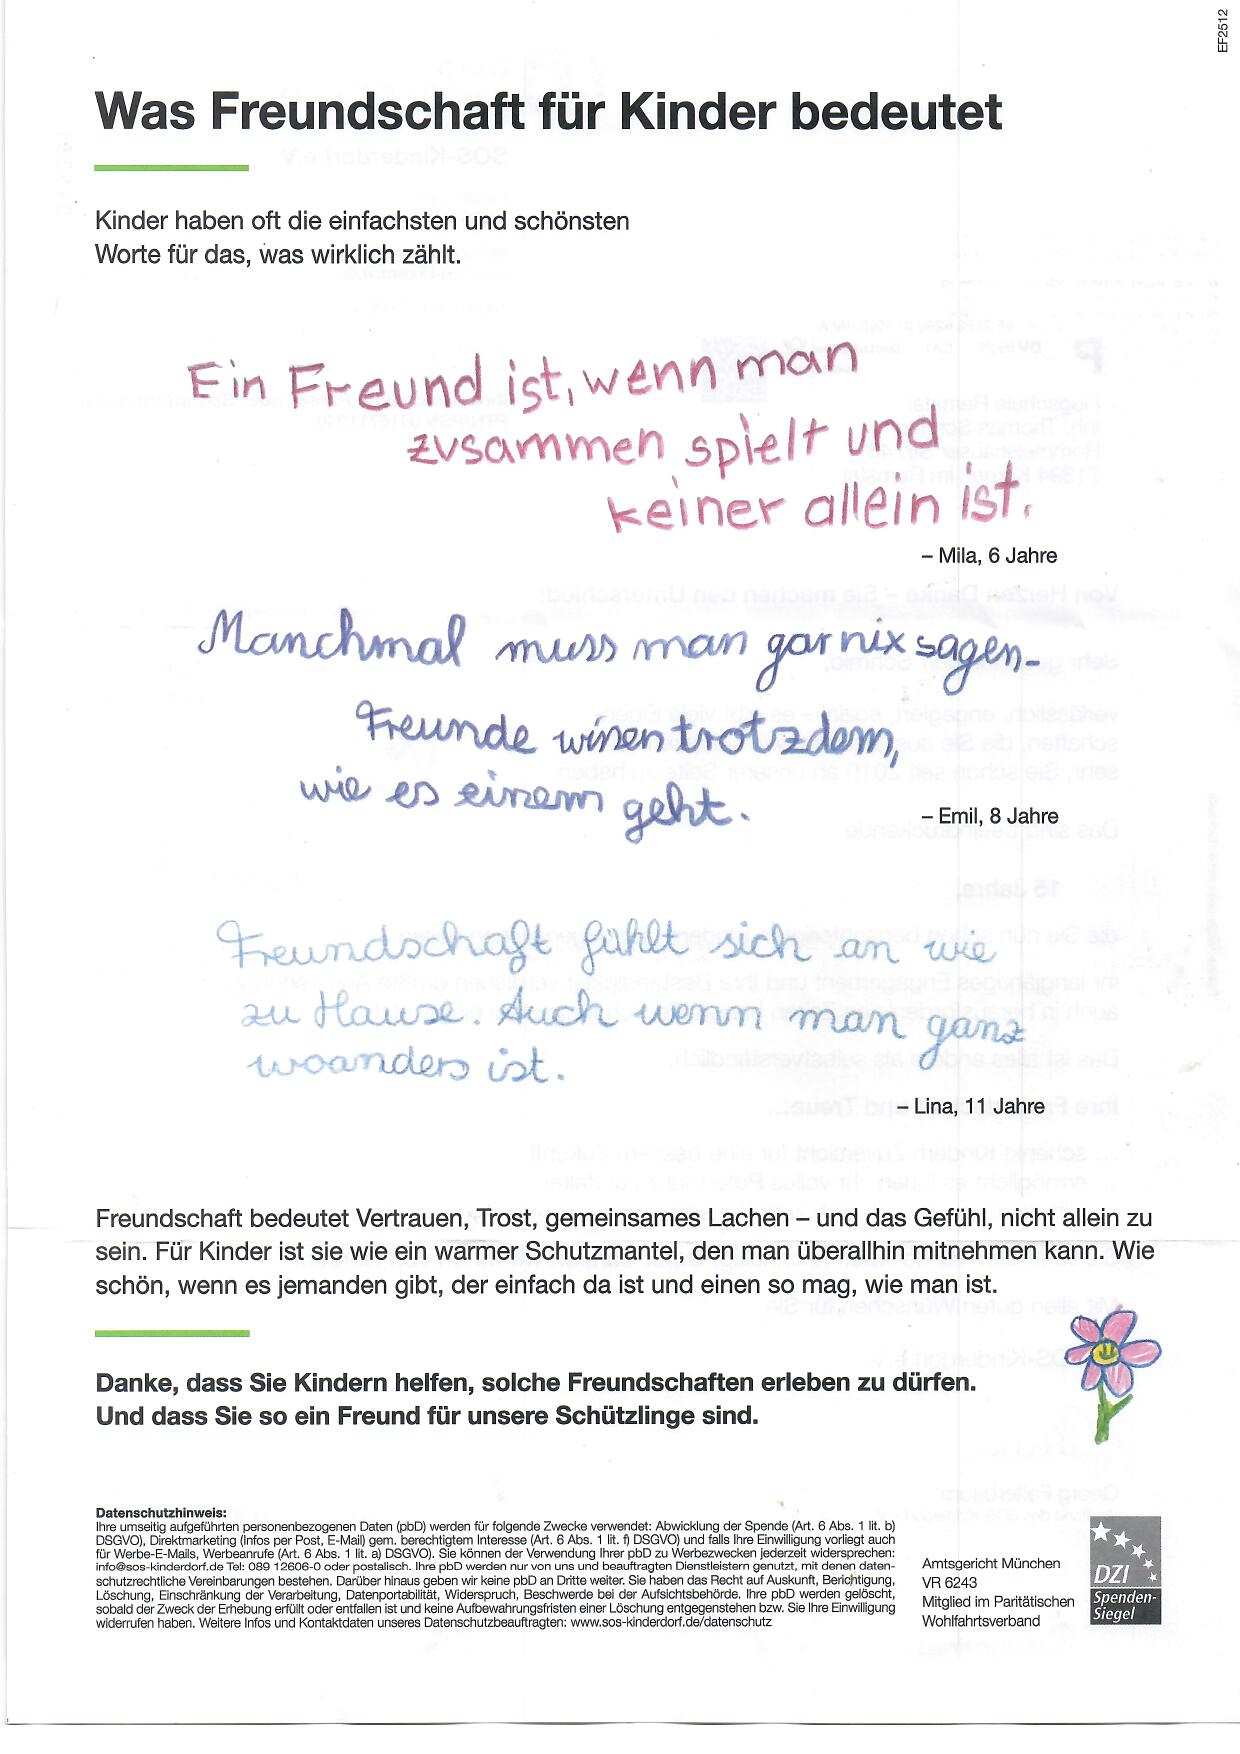 EF2512
Was Freundschaft für Kinder bedeutet
Kinder haben oft die einfachsten und schönsten
Worte für das, was wirklich zählt.
Ein Freund ist, wenn man
zusammen spielt und
keiner allein ist.
– Mila, 6 Jahre
Manchmal muss man gar nix sagen-
Freunde wissen trotzdem,
wie es einem geht.
– Emil, 8 Jahre
Freundschaft fühlt sich an wie
zu Hause. Auch wenn man ganz
woanders ist.
– Lina, 11 Jahre
Freundschaft bedeutet Vertrauen, Trost, gemeinsames Lachen – und das Gefühl, nicht allein zu
sein. Für Kinder ist sie wie ein warmer Schutzmantel, den man überallhin mitnehmen kann. Wie
schön, wenn es jemanden gibt, der einfach da ist und einen so mag, wie man ist.
Danke, dass Sie Kindern helfen, solche Freundschaften erleben zu dürfen.
Und dass Sie so ein Freund für unsere Schützlinge sind.
Datenschutzhinweis:
Ihre umseitig aufgeführten personenbezogenen Daten (pbD) werden für folgende Zwecke verwendet: Abwicklung der Spende (Art. 6 Abs. 1 lit. b)
DSGVO), Direktmarketing (Infos per Post, E-Mail) gem. berechtigtem Interesse (Art. 6 Abs. 1 lit. f) DSGVO) und falls Ihre Einwilligung vorliegt auch
für Werbe-E-Mails, Werbeanrufe (Art. 6 Abs. 1 lit. a) DSGVO). Sie können der Verwendung Ihrer pbD zu Werbezwecken jederzeit widersprechen:
info@sos-kinderdorf.de Tel: 089 12606-0 oder postalisch. Ihre pbD werden nur von uns und beauftragten Dienstleistern genutzt, mit denen daten-
schutzrechtliche Vereinbarungen bestehen. Darüber hinaus geben wir keine pbD an Dritte weiter. Sie haben das Recht auf Auskunft, Berichtigung,
Löschung, Einschränkung der Verarbeitung, Datenportabilität, Widerspruch, Beschwerde bei der Aufsichtsbehörde. Ihre pbD werden gelöscht,
sobald der Zweck der Erhebung erfüllt oder entfallen ist und keine Aufbewahrungsfristen einer Löschung entgegenstehen bzw. Sie Ihre Einwilligung
widerrufen haben. Weitere Infos und Kontaktdaten unseres Datenschutzbeauftragten: www.sos-kinderdorf.de/datenschutz
Amtsgericht München
VR 6243
Mitglied im Paritätischen
Wohlfahrtsverband
DZI
Spenden-
Siegel